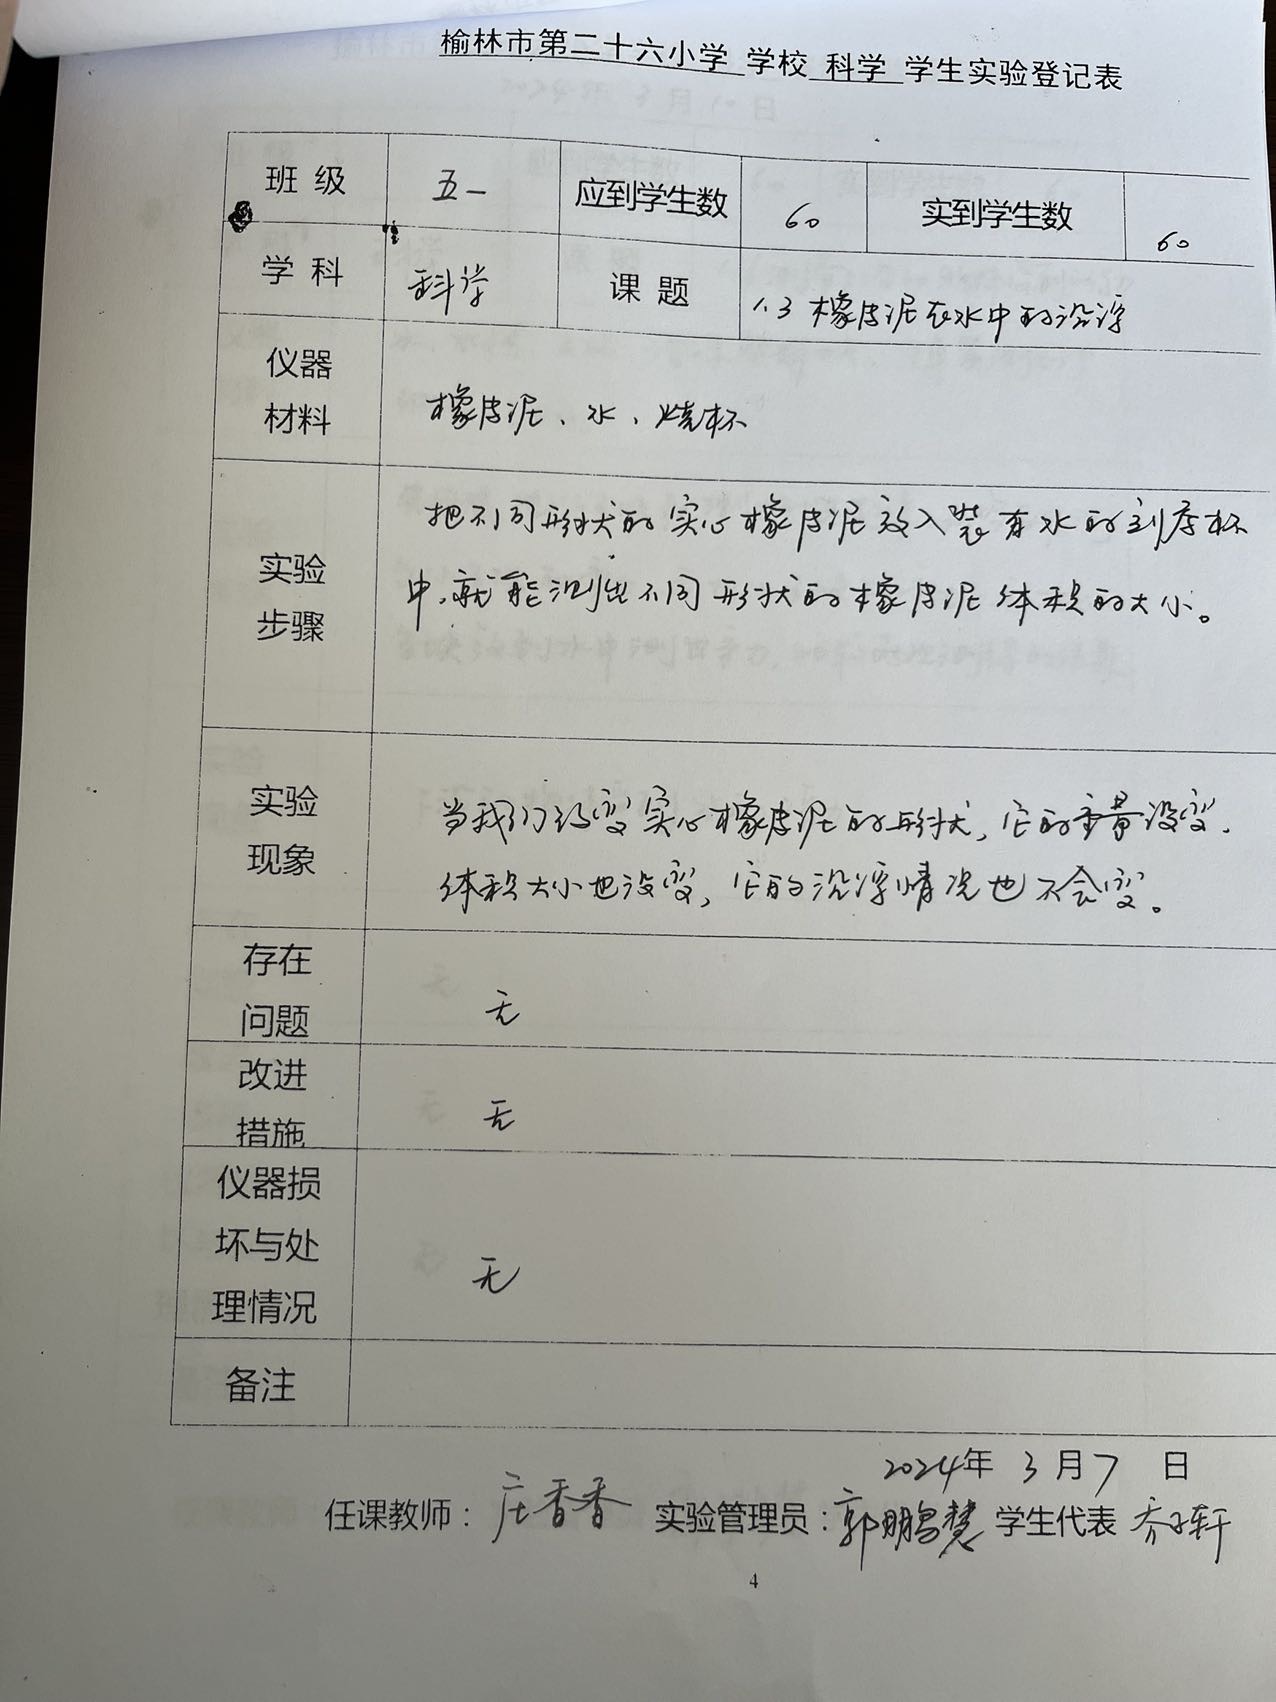 榆林市第二十六小学 学校 科学 学生实验登记表
班级 五一 应到学生数 60 实到学生数 60
学科 科学 课题 1.3 橡皮泥在水中的沉浮
仪器
材料
橡皮泥、水、烧杯
实验
步骤
把不同形状的实心橡皮泥放入装有水的刻度杯
中,就能测出不同形状的橡皮泥体积的大小。
实验
现象
当我们改变实心橡皮泥的形状,它的重量没变,
体积大小也没变,它的沉浮情况也不会变。
存在
问题
无
改进
措施
无
仪器损
坏与处
理情况
无
备注
2024年 3月7 日
任课教师:庄香香 实验管理员:郭鹏慧 学生代表 乔子轩
4